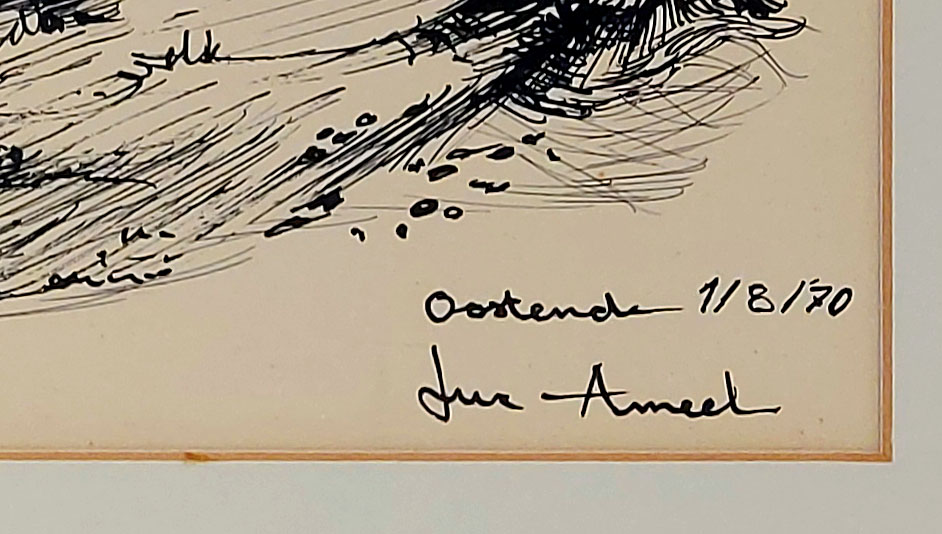 Oostende 1/8/70
Luc Ameel